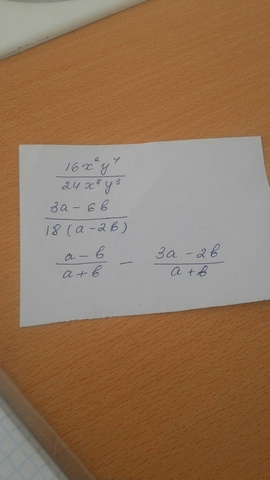 16x²y⁴
24x⁸y³
3a - 6b
18(a - 2b)
a - b / a + b - 3a - 2b / a + b